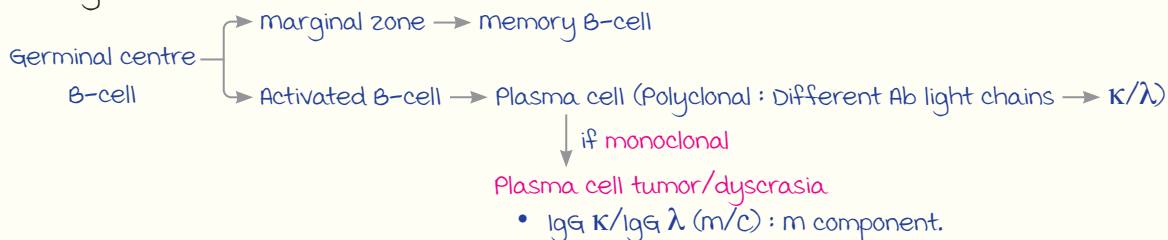 marginal zone → memory B-cell
Germinal centre
B-cell
Activated B-cell → Plasma cell (Polyclonal : Different Ab light chains → κ/λ)
if monoclonal
Plasma cell tumor/dyscrasia
• IgG κ/IgG λ (m/c) : m component.